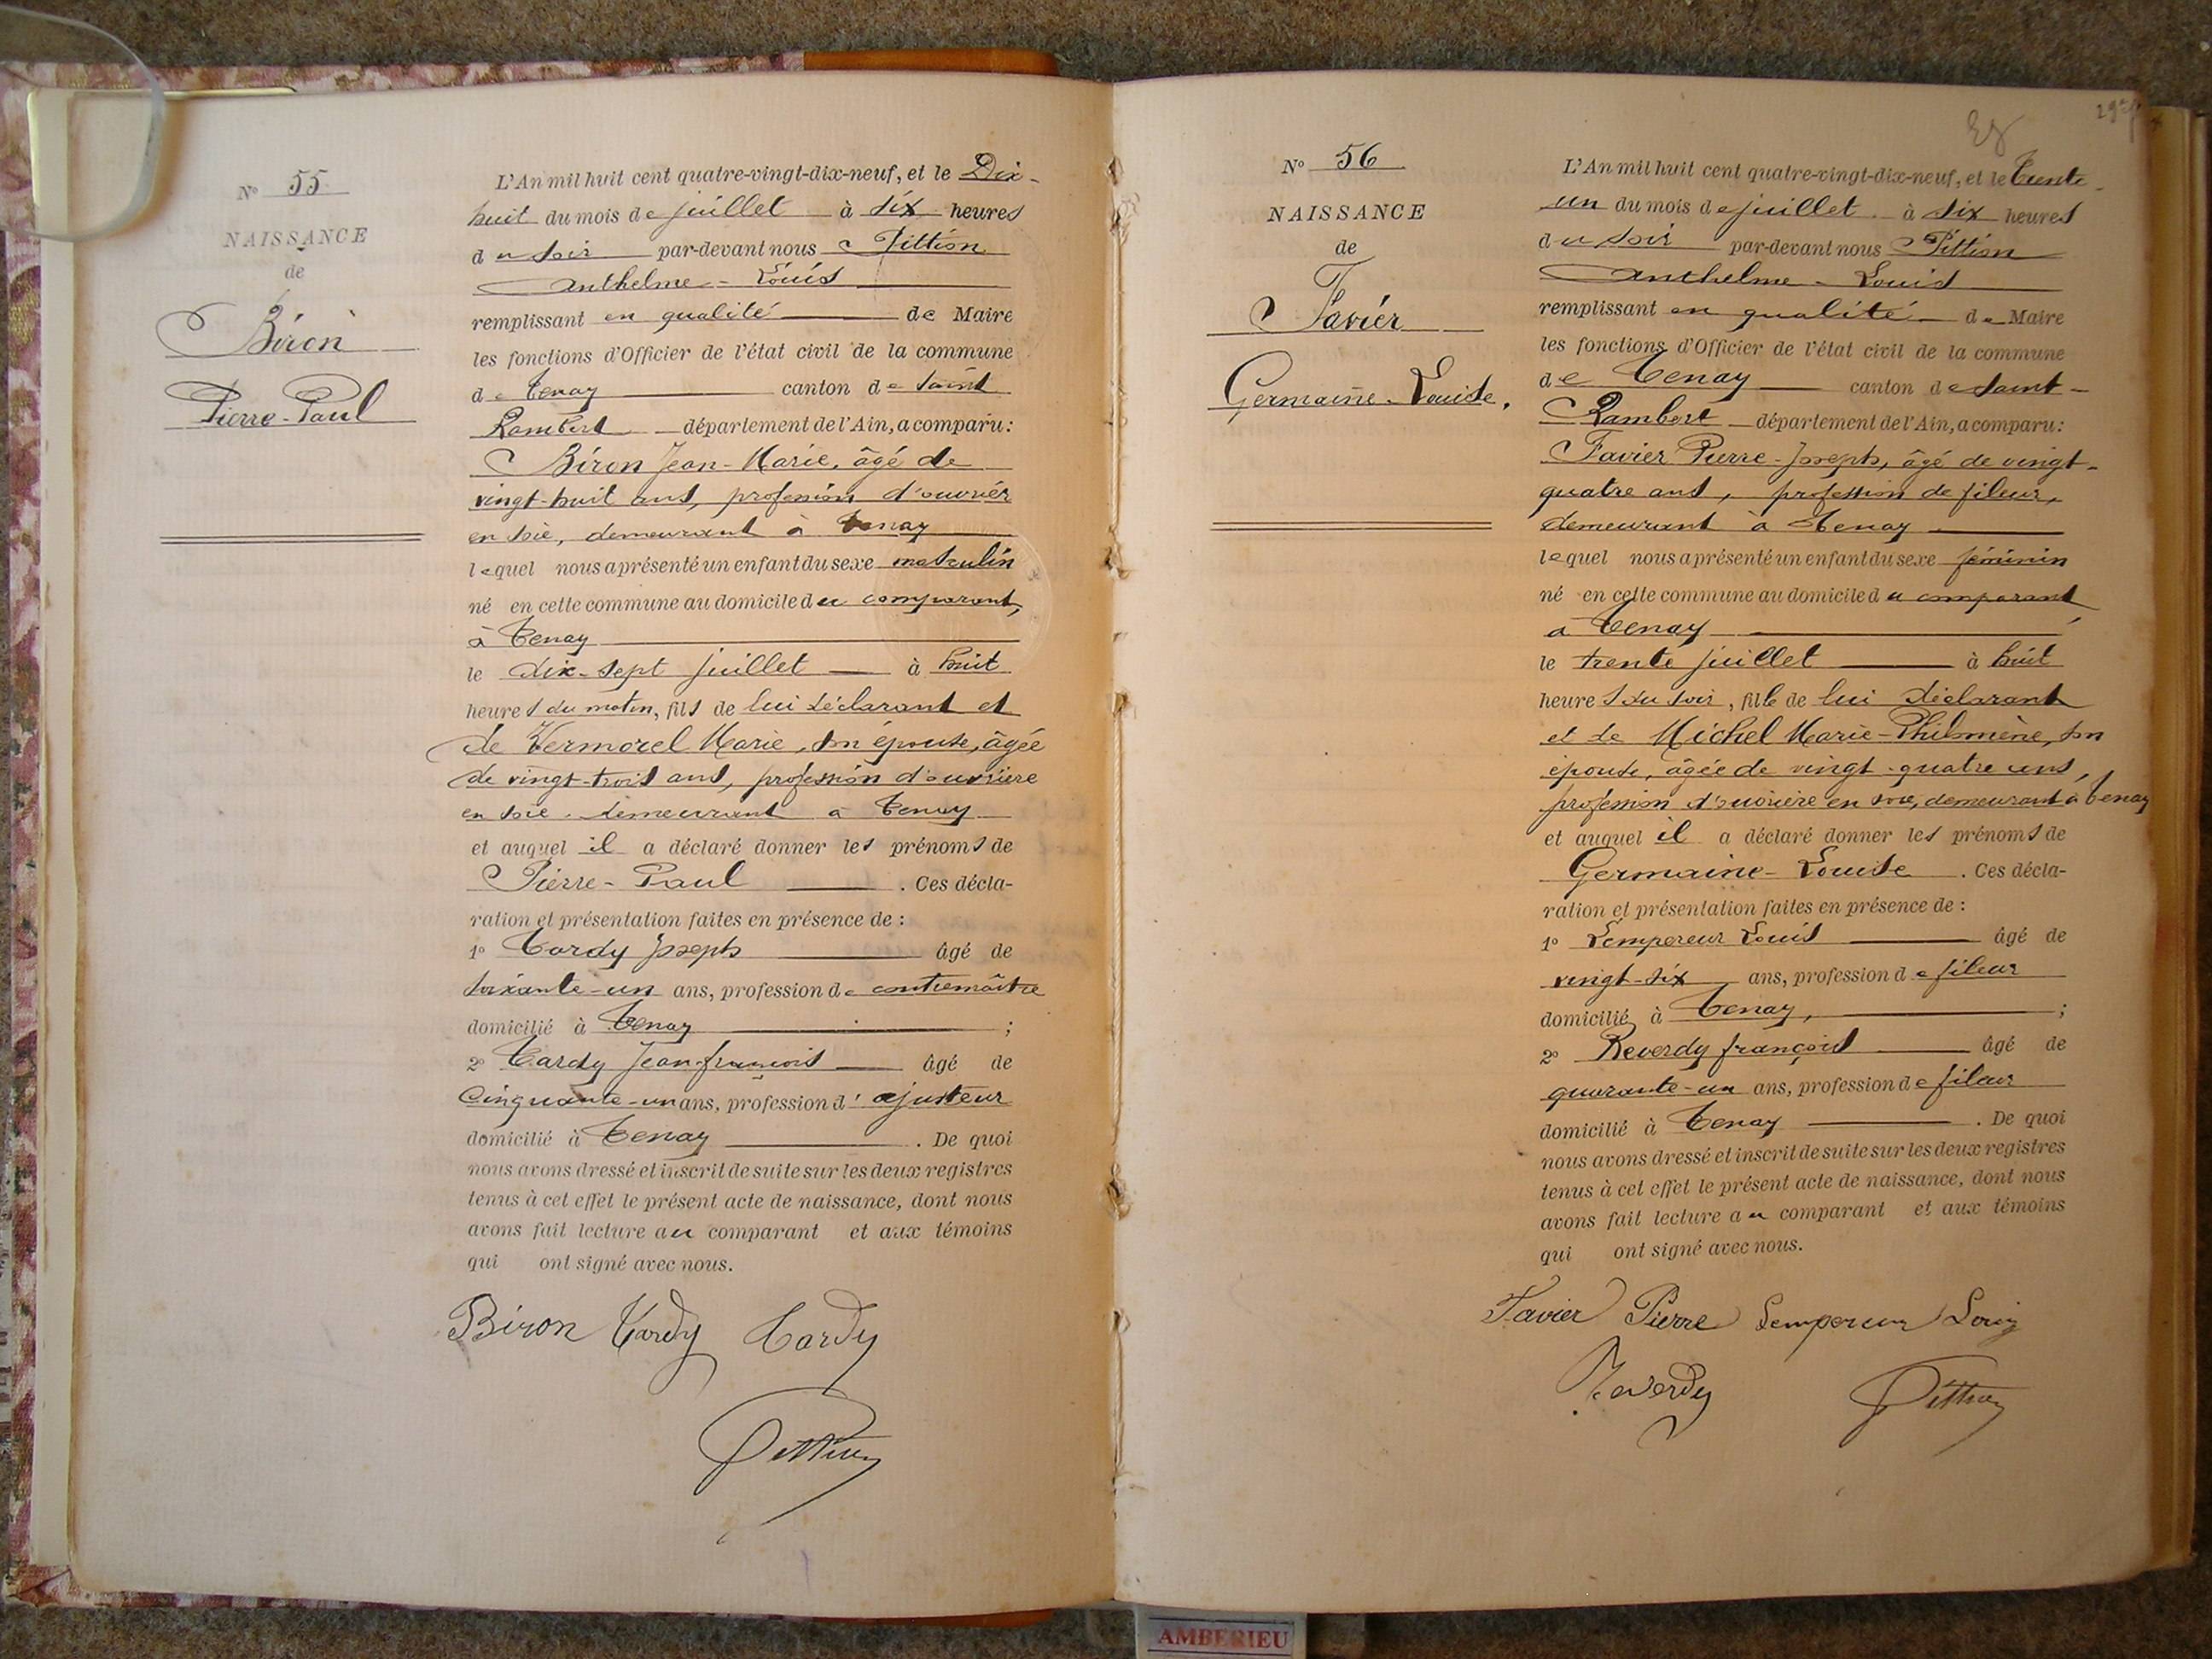 N° 55
NAISSANCE
de
Biron
Pierre-Paul
L'An mil huit cent quatre-vingt-dix-neuf, et le Dix-
huit du mois de juillet à six heures
du soir par-devant nous Pittion
Anthelme-Louis
remplissant en qualité de Maire
les fonctions d'Officier de l'état civil de la commune
de Tenay canton de Saint
Rambert département de l'Ain, a comparu:
Biron Jean-Marie, âgé de
vingt-huit ans, profession d'ouvrier
en soie, demeurant à Tenay
lequel nous a présenté un enfant du sexe masculin
né en cette commune au domicile du comparant,
à Tenay
le dix-sept juillet à huit
heures du matin, fils de lui déclarant et
de Vermorel Marie, son épouse, âgée
de vingt-trois ans, profession d'ouvrière
en soie, demeurant à Tenay
et auquel il a déclaré donner les prénoms de
Pierre-Paul . Ces décla-
ration et présentation faites en présence de :
1° Tardy Joseph âgé de
soixante-un ans, profession de contremaître
domicilié à Tenay ;
2° Tardy Jean-françois âgé de
Cinquante-un ans, profession d'ajusteur
domicilié à Tenay . De quoi
nous avons dressé et inscrit de suite sur les deux registres
tenus à cet effet le présent acte de naissance, dont nous
avons fait lecture au comparant et aux témoins
qui ont signé avec nous.
Biron Tardy Tardy
Pittion
N° 56
NAISSANCE
de
Favier
Germaine-Louise.
L'An mil huit cent quatre-vingt-dix-neuf, et le Trente-
un du mois de juillet à six heures
du soir par-devant nous Pittion
Anthelme-Louis
remplissant en qualité de Maire
les fonctions d'Officier de l'état civil de la commune
de Tenay canton de Saint-
Rambert département de l'Ain, a comparu:
Favier Pierre-Joseph, âgé de vingt-
quatre ans, profession de fileur,
demeurant à Tenay
lequel nous a présenté un enfant du sexe féminin
né en cette commune au domicile du comparant
à Tenay
le trente juillet à huit
heures du soir, fille de lui déclarant
et de Michel Marie-Philomène, son
épouse, âgée de vingt-quatre ans,
profession d'ouvrière en soie, demeurant à Tenay
et auquel il a déclaré donner les prénoms de
Germaine-Louise . Ces décla-
ration et présentation faites en présence de :
1° Lempereur Louis âgé de
vingt-six ans, profession de fileur
domicilié à Tenay, ;
2° Reverdy françois âgé de
quarante-un ans, profession de fileur
domicilié à Tenay . De quoi
nous avons dressé et inscrit de suite sur les deux registres
tenus à cet effet le présent acte de naissance, dont nous
avons fait lecture au comparant et aux témoins
qui ont signé avec nous.
Favier Pierre Lempereur Louis
Reverdy Pittion
AMBERIEU